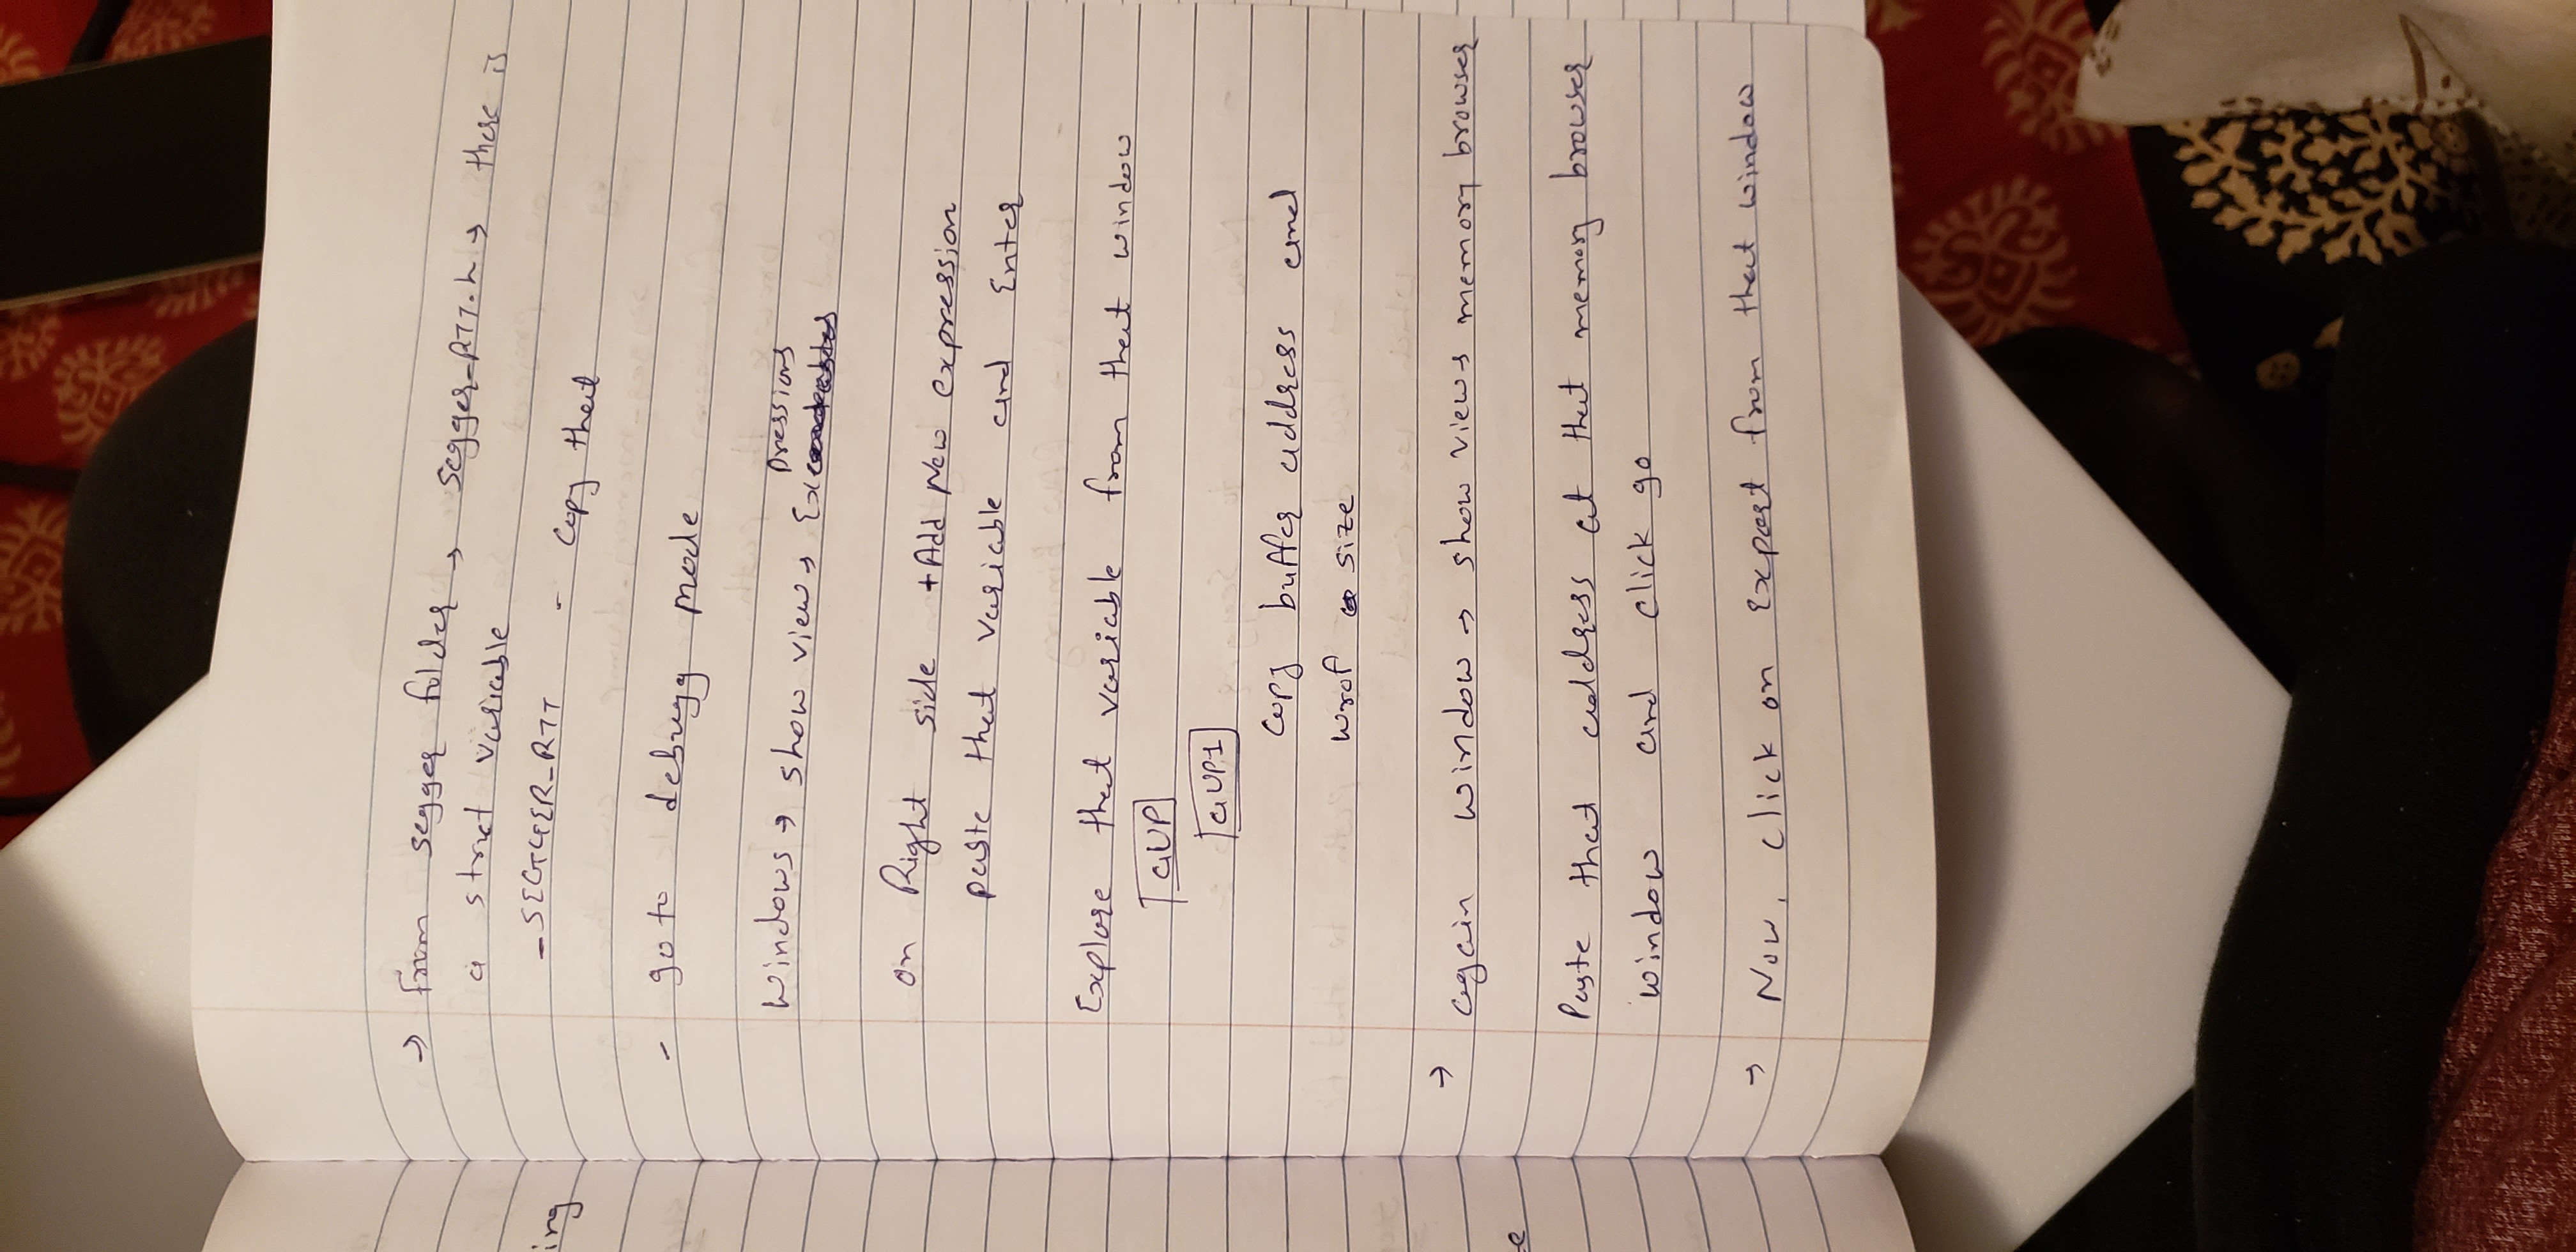 → from segger folder → segger_RTT.h → there is
a struct variable
_SEGGER_RTT - Copy that
- go to debugg mode
Windows → show view → Expressions
on Right side +Add New expression
paste that variable and Enter
Explore that variable from that window
aUP
aUP1
copy buffer address and
wrof size
→ again window → show view → memory browser
Paste that address at that memory browser
window and click go
→ Now, click on Export from that window
ing
e